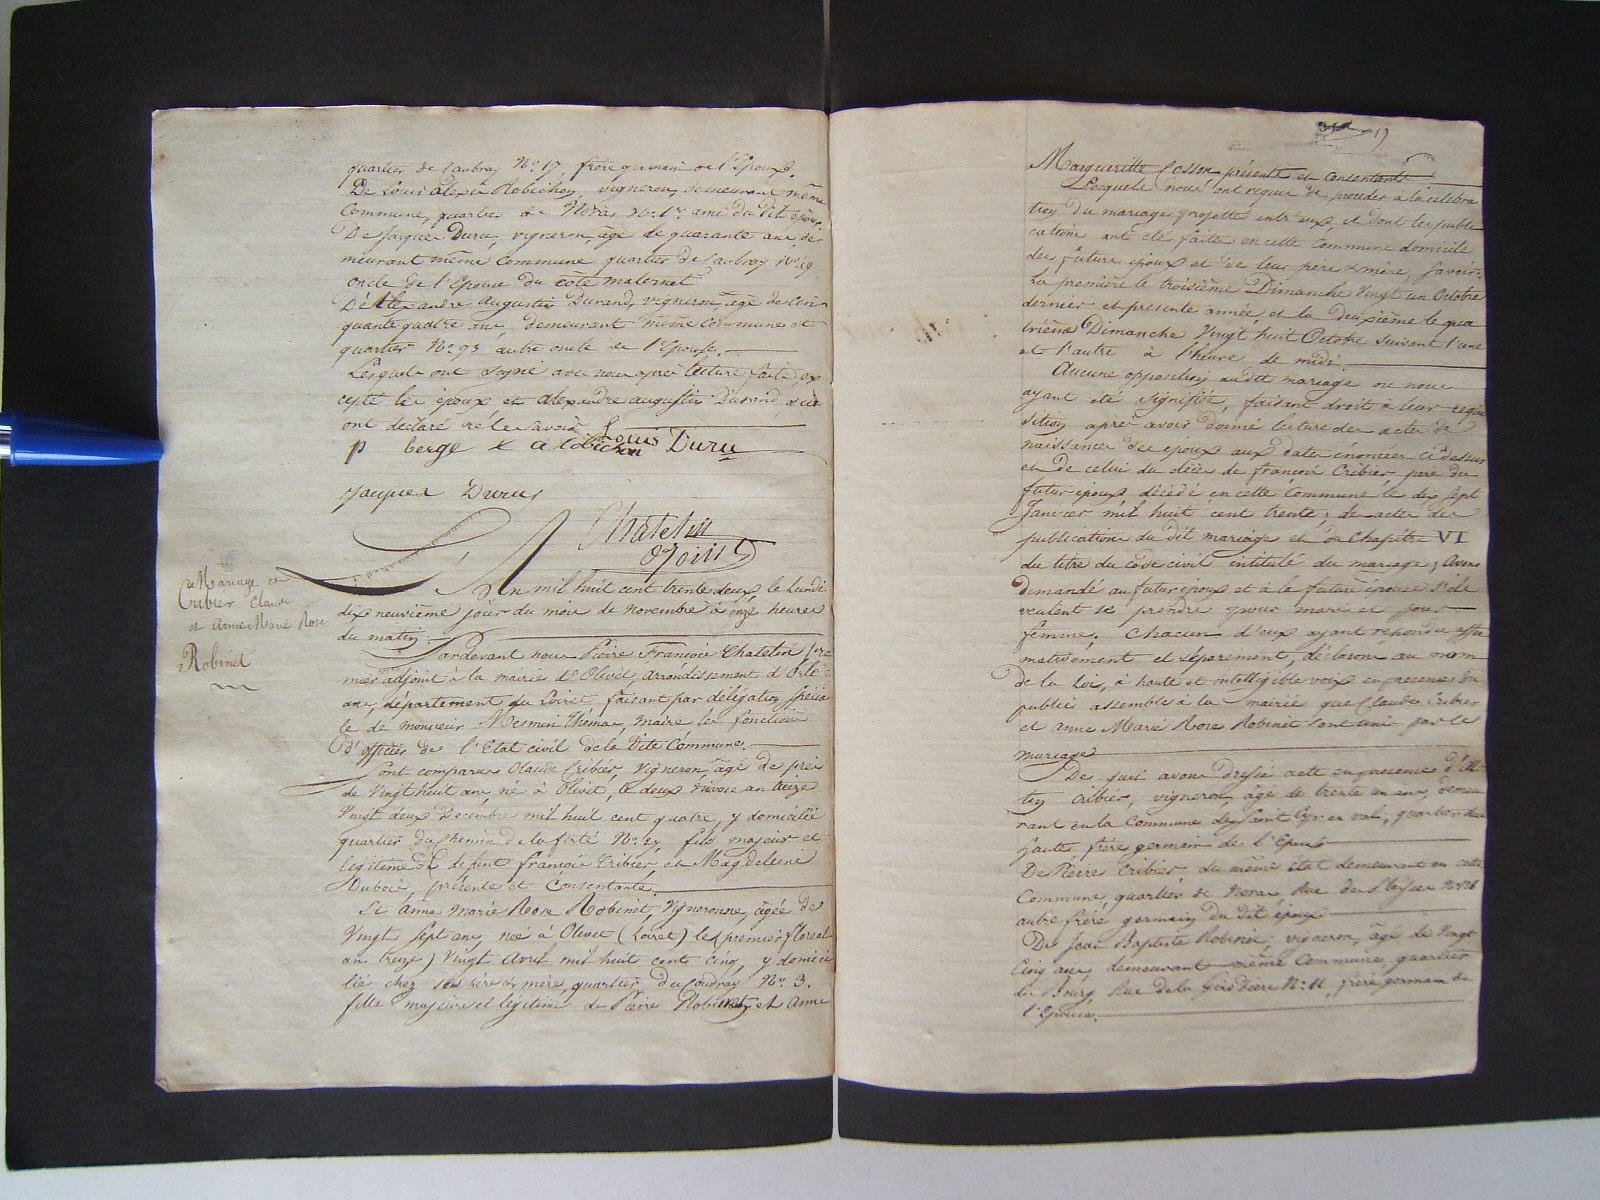 quartier de Caubray N.° 17, frère germain de l'Epoux.
De Louis alexis Robichon, vigneron, demeurant même
Commune, quartier de N.° 1.er ami du dit époux
De Jacques Duru, vigneron, âgé de quarante ans, de
meurant même commune quartier de Caubray N.° 49
oncle de l'Epouse du côté maternel
D'Alexandre Augustin Durand, vigneron, âgé de cin
quante quatre ans, demeurant même commune et
quartier N.° 93 autre oncle de l'Epouse.
Lesquels ont signé avec nous après lecture faite, ex
cepté les époux et alexandre augustin Durand qui
ont déclaré ne le savoir
p berge L a Robichon Louis Duru
Jacques Duru
Chatelin
adjoint
de Mariage de
Cribier Claude
et Anne Marie Rose
Robinet
L'An mil huit cent trente deux le Lundi
dix neuvième jour du mois de Novembre à onze heures
du matin.
Pardevant nous Pierre François Chatelin pre
mier adjoint à la mairie d'Olivet, arrondissement d'Orlé
ans, département du Loiret faisant par délégation spécia
le de monsieur Mesmin Thomas, Maire les fonctions
d'officier de l'Etat civil de la dite Commune.
Sont comparus Claude Cribier, Vigneron, âgé de près
de Vingt huit ans, né à Olivet, le deux Nivose an treize
Vingt deux Decembre mil huit cent quatre, y domicilié
quartier du Chemin de la ferté N.° fils majeur et
légitime de defunt françois Cribier, et Magdeleine
Dubois, présente et Consentante.
Et Anne Marie Rose Robinet, Vigneronne, âgée de
Vingt sept ans, née à Olivet (Loiret) le (premier floreal
an treize) Vingt avril mil huit cent cinq, y domici
lié chez ses père & mère, quartier du Coudray N.° 3.
fille majeure et légitime de Pierre Robinet, et Anne
19
Margueritte Cosson présents et consentants
Lesquels nous ont requis de procéder à la célébra
tion du mariage projetté entr'eux, et dont les publi
cations ont été faites en cette Commune domicile
des futurs époux et de leurs père & mère, Savoir:
La première le troisième Dimanche Vingt un Octobre
dernier et présente année, et la deuxième le qua
trième Dimanche Vingt huit Octobre suivant l'une
et l'autre à l'heure de midi.
Aucune opposition audit mariage ne nous
ayant été signifiée, faisant droit à leur réqui
sition après avoir donné lecture des actes de
naissances des époux aux dates énoncées ci dessus
et de celui du décès de françois Cribier, père du
futur époux, décédé en cette Commune le dix sept
Janvier mil huit cent trente; des actes des
publications du dit mariage et du Chapitre VI
du titre du code civil intitulé du mariage; Avons
demandé au futur époux et à la future épouse s'ils
veulent se prendre pour mari et pour
femme; Chacun d'eux ayant répondu affir
mativement et séparement, déclarons au nom
de la Loi, à haute et intelligible voix en présence du
public assemblé à la mairie que Claude Cribier
et Anne Marie Rose Robinet sont unis par le
mariage
De quoi avons dressé acte en présence d'
Cribier, vigneron, âgé de trente un ans, demeu
rant en la Commune de Saint Cyr en val, quartier des
frère germain de l'Epoux
De Pierre Cribier du même état demeurant en cette
Commune, quartier de Rue de N.°
autre frère germain du dit époux
De Jean Baptiste Robinet, vigneron, âgé de Vingt
Cinq ans, demeurant même Commune, quartier
du Bourg, Rue de la N.° 11, frère germain de
l'Epouse.